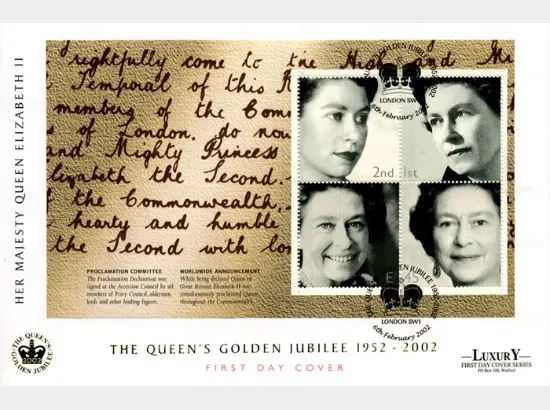 HER MAJESTY QUEEN ELIZABETH II
rightfully come to the High and Mi
Temporal of this R
members of the Com
s of London, do now
and Mighty Princess
lizabeth the Second.
f the Commonwealth,
hearty and humble
the Second with lo
GOLDEN JUBILEE
LONDON SW1
6th February 2002
2nd
1st
E
45
PROCLAMATION COMMITTEE
The Proclamation Declaration was
signed at the Accession Council by all
members of Privy Council, aldermen,
lords and other leading figures.
WORLDWIDE ANNOUNCEMENT
While being declared Queen in
Great Britain Elizabeth II was
simultaneously proclaimed Queen
throughout the Commonwealth.
GOLDEN JUBILEE
LONDON SW1
6th February 2002
THE QUEEN'S
2002
GOLDEN JUBILEE
THE QUEEN'S GOLDEN JUBILEE 1952 - 2002
FIRST DAY COVER
LUXURY
FIRST DAY COVER SERIES
PO Box 100, Watford